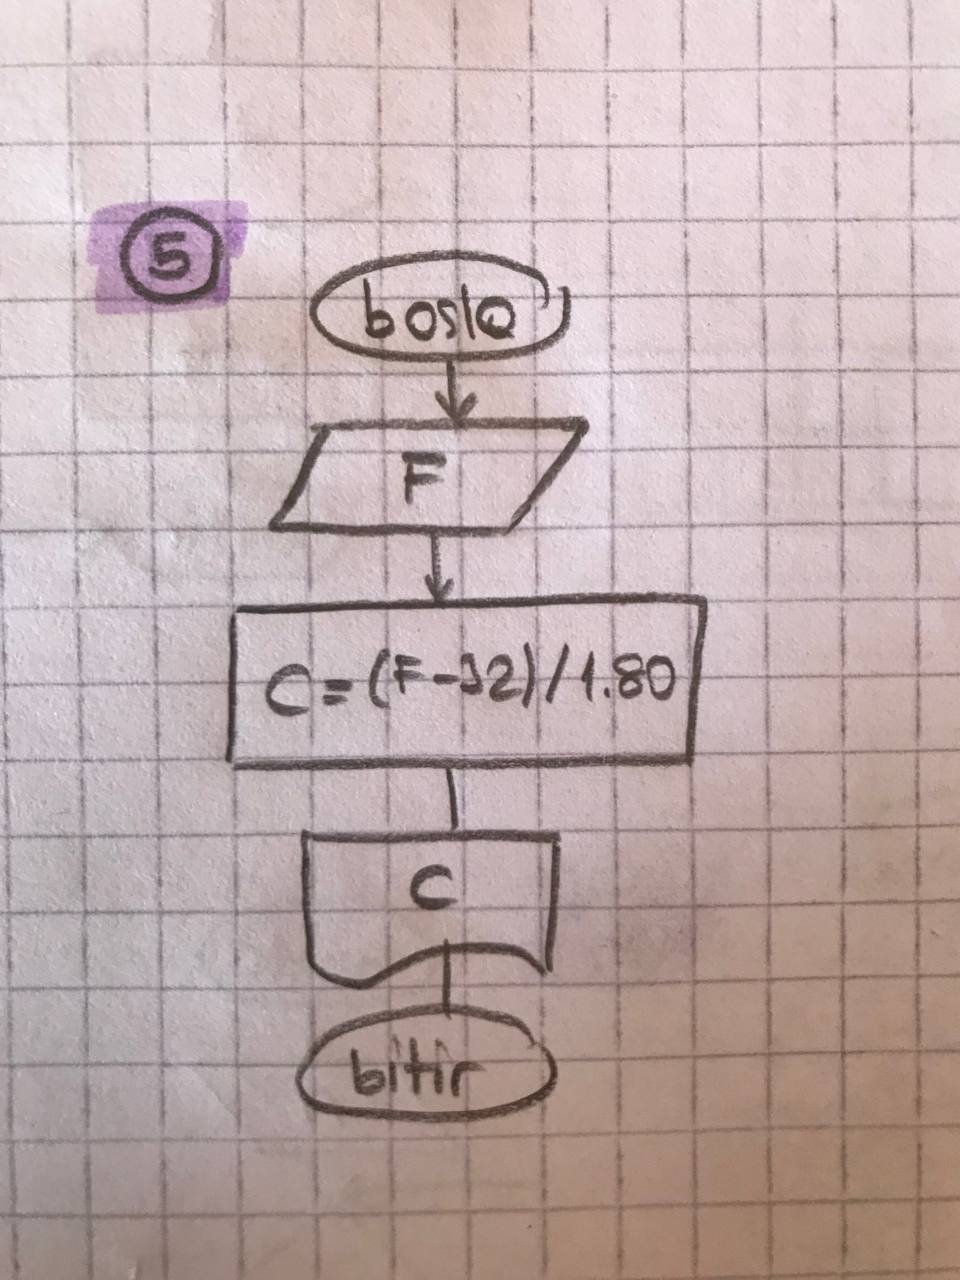 5
basla
F
C=(F-32)/1.80
C
bitir